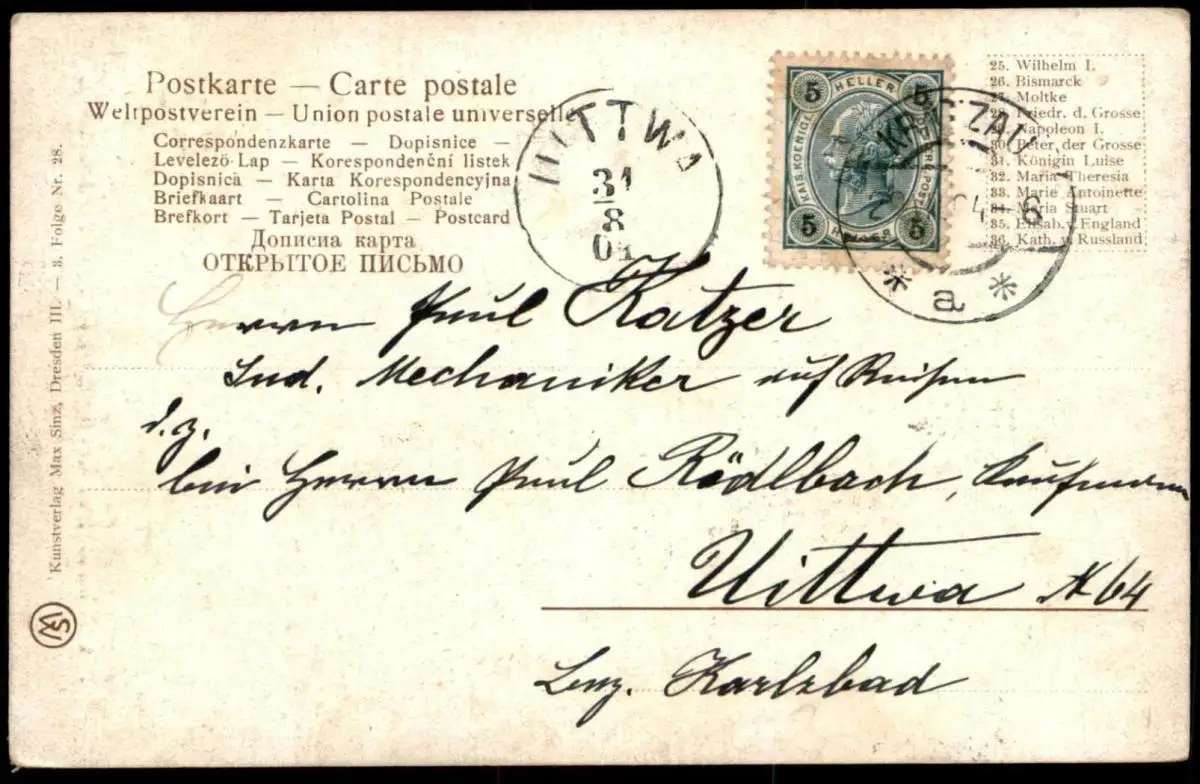 Postkarte — Carte postale
Weltpostverein — Union postale universelle
Correspondenzkarte — Dopisnice —
Levelezö-Lap — Korespondenční listek
Dopisnica — Karta Korespondencyjna
Briefkaart — Cartolina Postale
Brefkort — Tarjeta Postal — Postcard
Дописна карта
ОТКРЫТОЕ ПИСЬМО
UITTWA
31
8
04
5 HELLER 5
KAIS. KOENIGL.
5 HELLER 5
KRATZAU
04 - 6
* a *
25. Wilhelm I.
26. Bismarck
27. Moltke
28. Friedr. d. Grosse
29. Napoleon I.
30. Peter der Grosse
31. Königin Luise
32. Maria Theresia
33. Marie Antoinette
34. Maria Stuart
35. Elisab. v. England
36. Kath. v. Russland
Herrn Paul Katzer
Mechaniker auf Reisen
d. z.
bei Herrn Paul Rödlbach, Kaufmann
Uittwa N 64
Bez. Karlsbad
Kunstverlag Max Sinz, Dresden III. — 3. Folge Nr. 28.